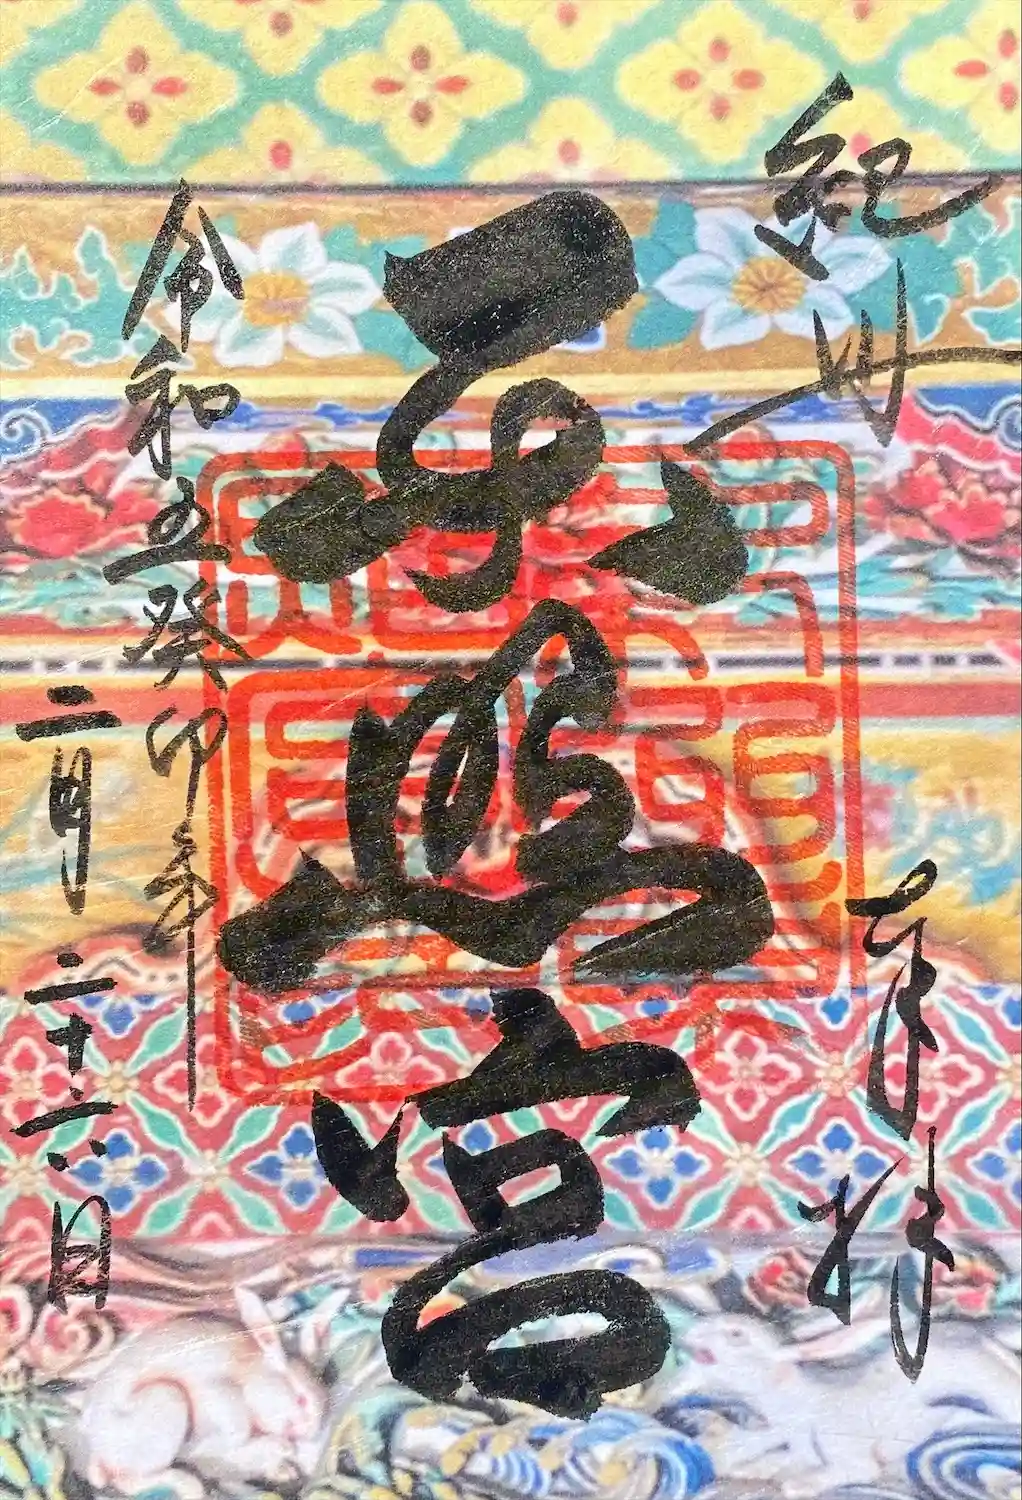 紀州
奉拝
東照宮
令和五癸卯年
二月二十六日